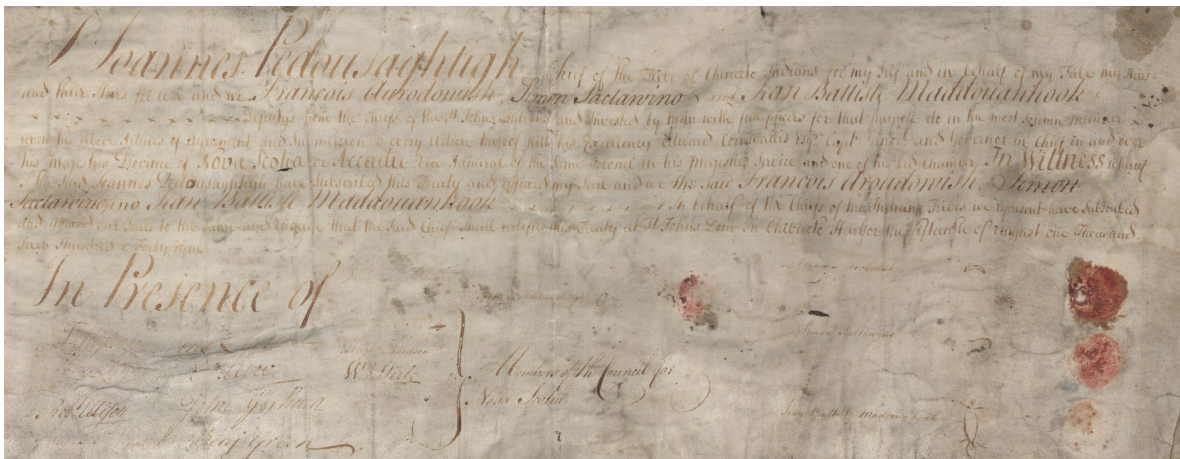 I Joannes Pedousaghugh Chief of the Tribe of Chinecte Indians for my Self and in behalf of my Tribe my Heirs
and their Heirs for ever and we Francois Aurodowish, Simon Sactawino and Jean Battiste Maddouanhook
Deputys from the Chiefs of the St Johns Indians and Invested by them with full powers for that purpose do in the most solemn manner
renew the above Articles of Agreement and Submission & every Article thereof with his Excellency Edward Cornwallis Esqr Capt Genel and Governor in Chief in and over
his Majestys Province of Nova Scotia or Accadie Vice Admiral of the same Colonel in his Majestys Service and one of his Bed Chamber, In Wittness whereof
I the Said Joannes Pedousaghugh have Subscribed this Treaty and affixed my Seal and we the said Francois Aroudowish, Simon
Sactawino and Jean Battiste Maddouanhook In behalf of the Chiefs of the Indian Tribes we represent have Subscribed
and affixed our Seals to the same and engage that the Said Chiefs Shall ratifye this Treaty at St Johns Done in Chibucto Harbor the fifteenth of August one Thousand
Seven hundred & Forty nine
In Presence of
Wm Steele
Members of the Council for
Nova Scotia
Robt Ellison John Gorham
Jean Battiste Maddouanhook
Benj Green